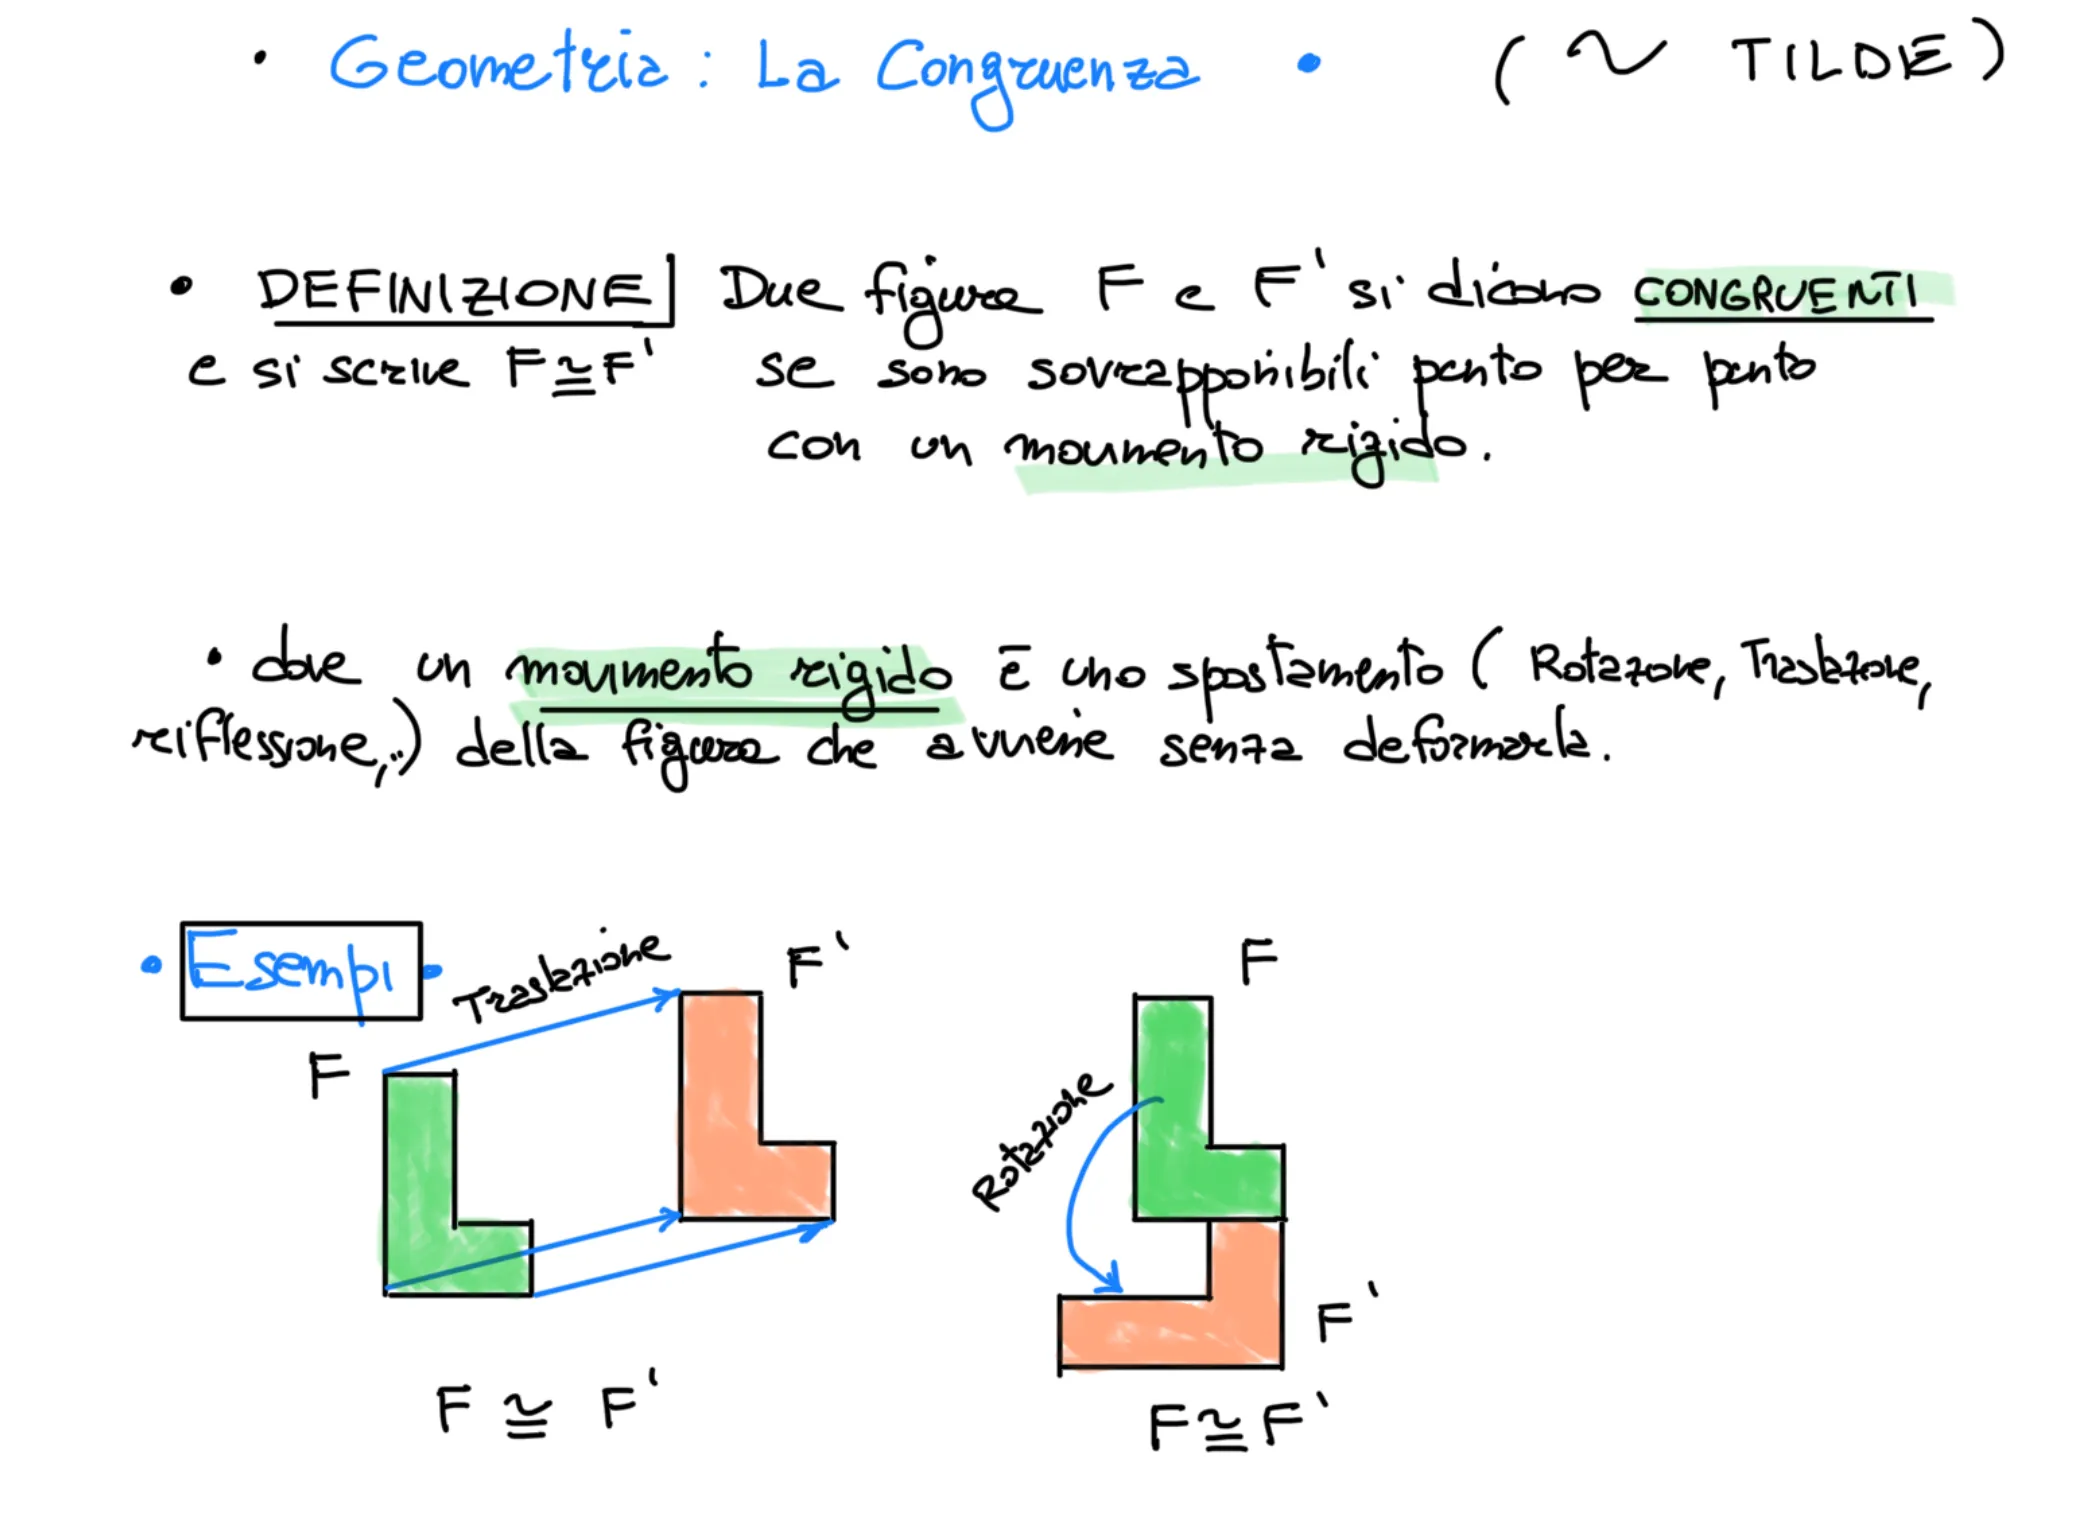 • Geometria : La Congruenza • (~ TILDE)
• DEFINIZIONE] Due figure F e F' si dicono CONGRUENTI
e si scrive F≅F' se sono sovrapponibili punto per punto
con un movimento rigido.
• dove un movimento rigido è uno spostamento (Rotazione, Traslazione,
riflessione,..) della figura che avviene senza deformarla.
• Esempi •
Traslazione
F'
F
F ≅ F'
F
Rotazione
F'
F≅F'